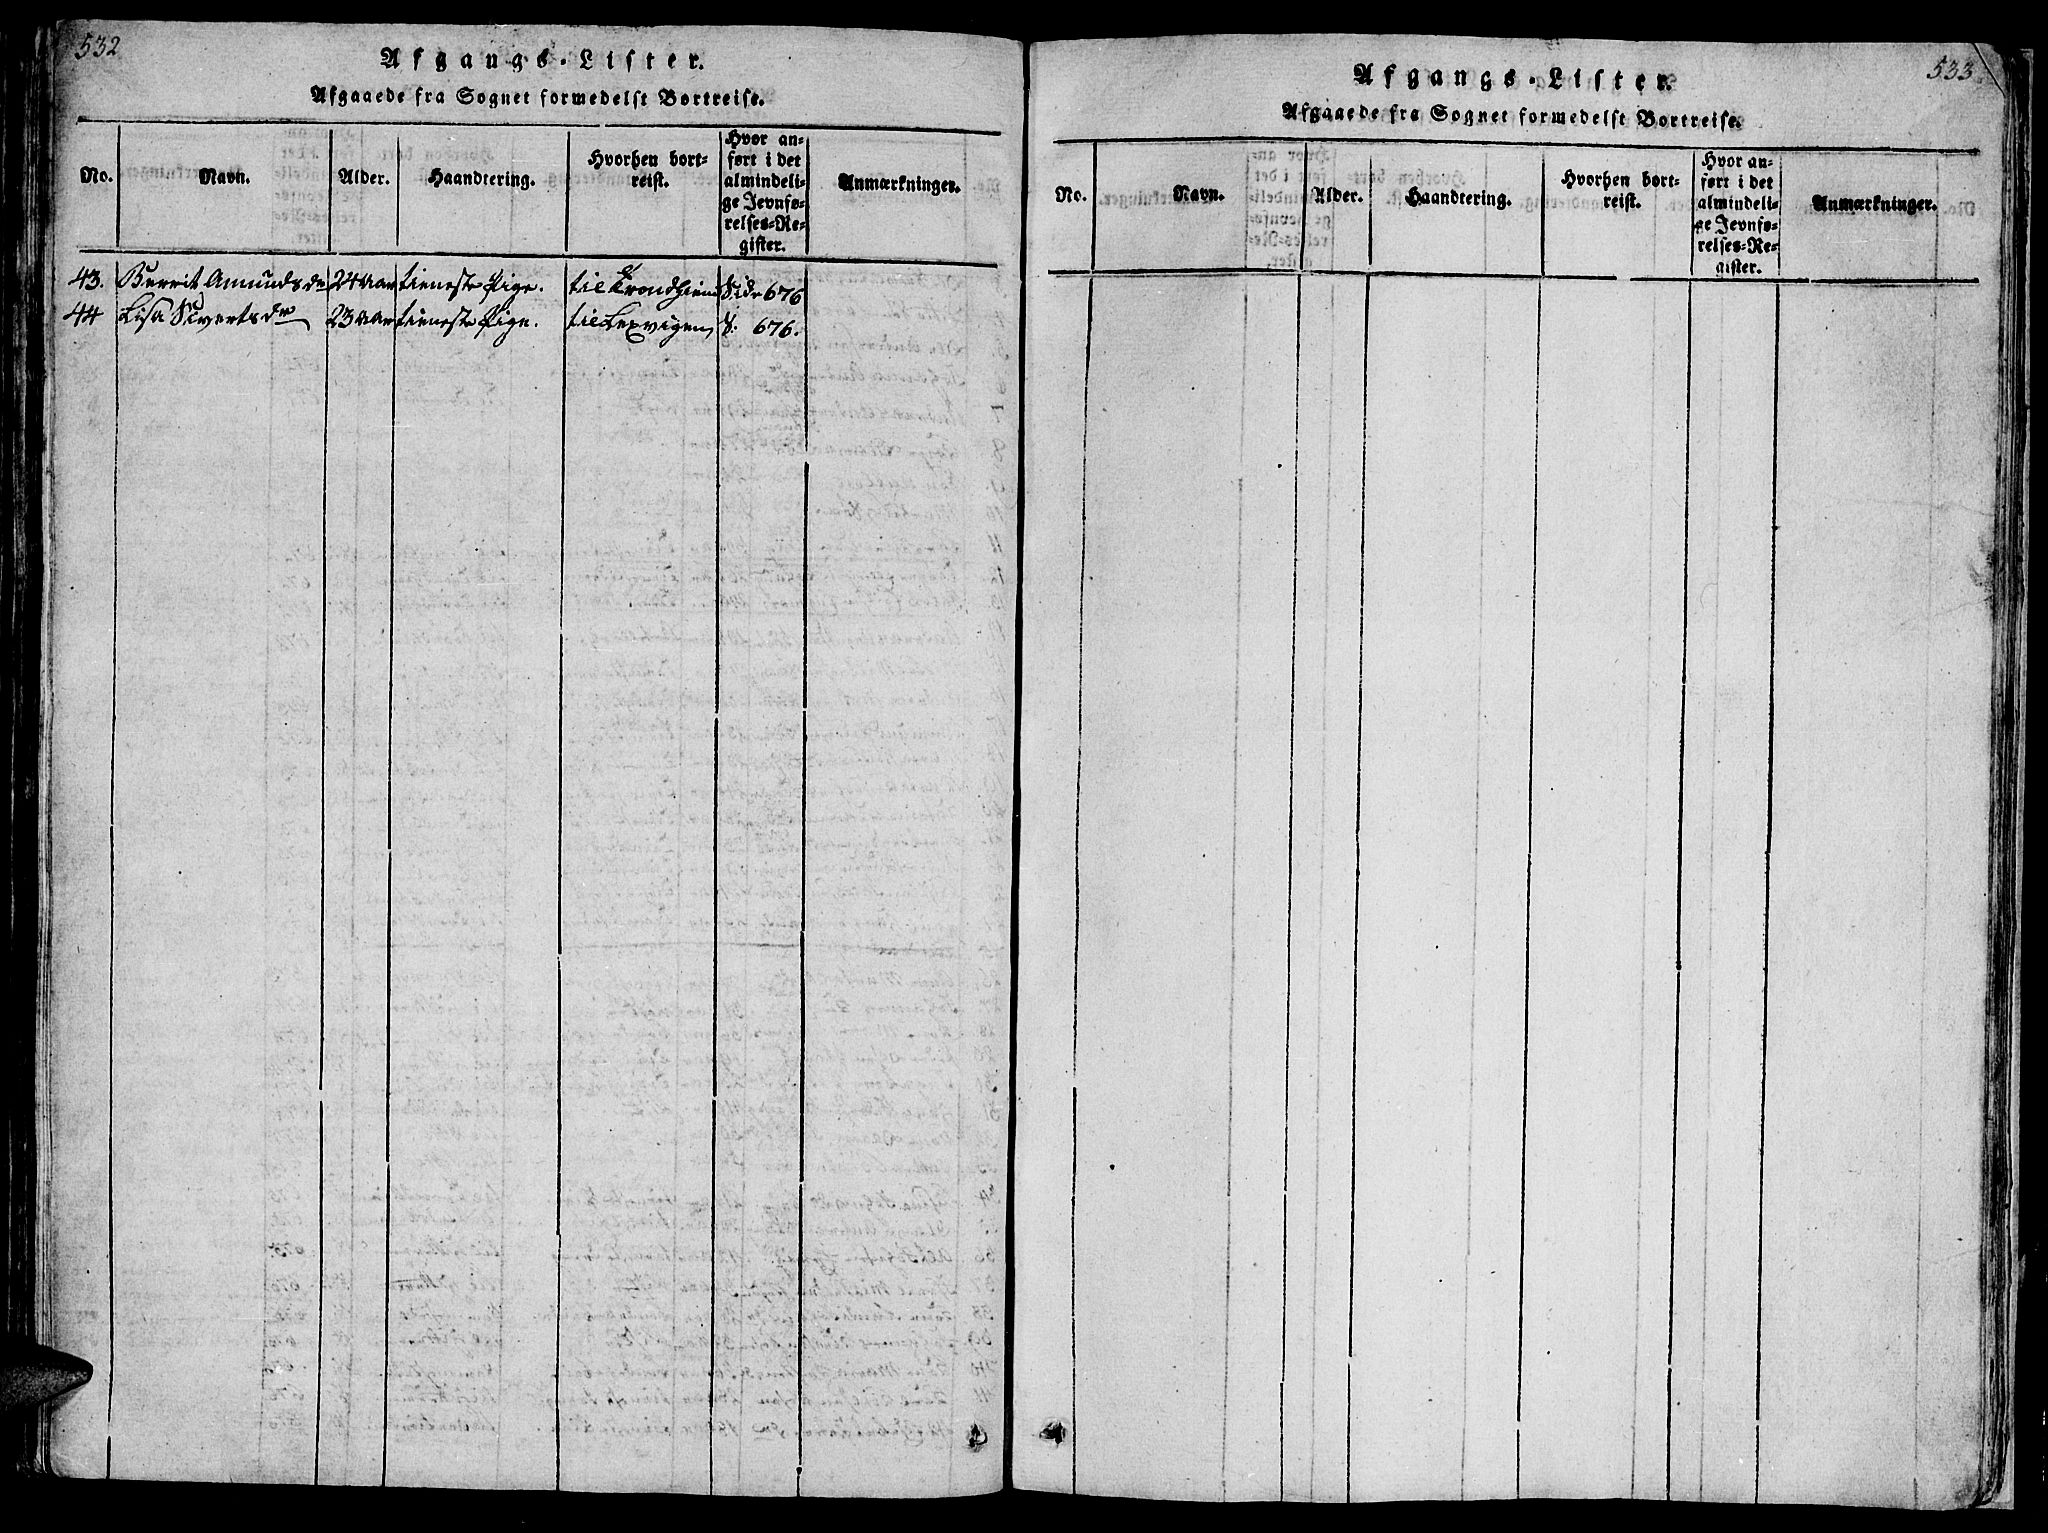 532
Afgangs-Lister.
Afgaaede fra Sognet formedelst Bortreise.
No. Navn. Alder. Haandtering. Hvorhen bort-
reist. Hvor an-
ført i det
almindeli-
ge Jevnfø-
relses-Re-
gister. Anmærkninger.
43. Berrit Amunds dr 24 aar tieneste Pige. til Trondhiem Side 676
44 Lisa Siverts dr 23 aar tieneste Pige. til Lexvigen S: 676.
533
Afgangs-Lister.
Afgaaede fra Sognet formedelst Bortreise.
No. Navn. Alder. Haandtering. Hvorhen bort-
reist. Hvor an-
ført i det
almindeli-
ge Jevnfø-
relses-Re-
gister. Anmærkninger.